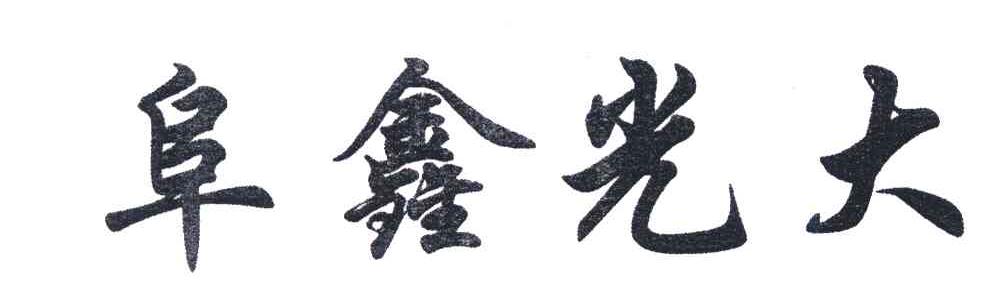 阜鑫光大